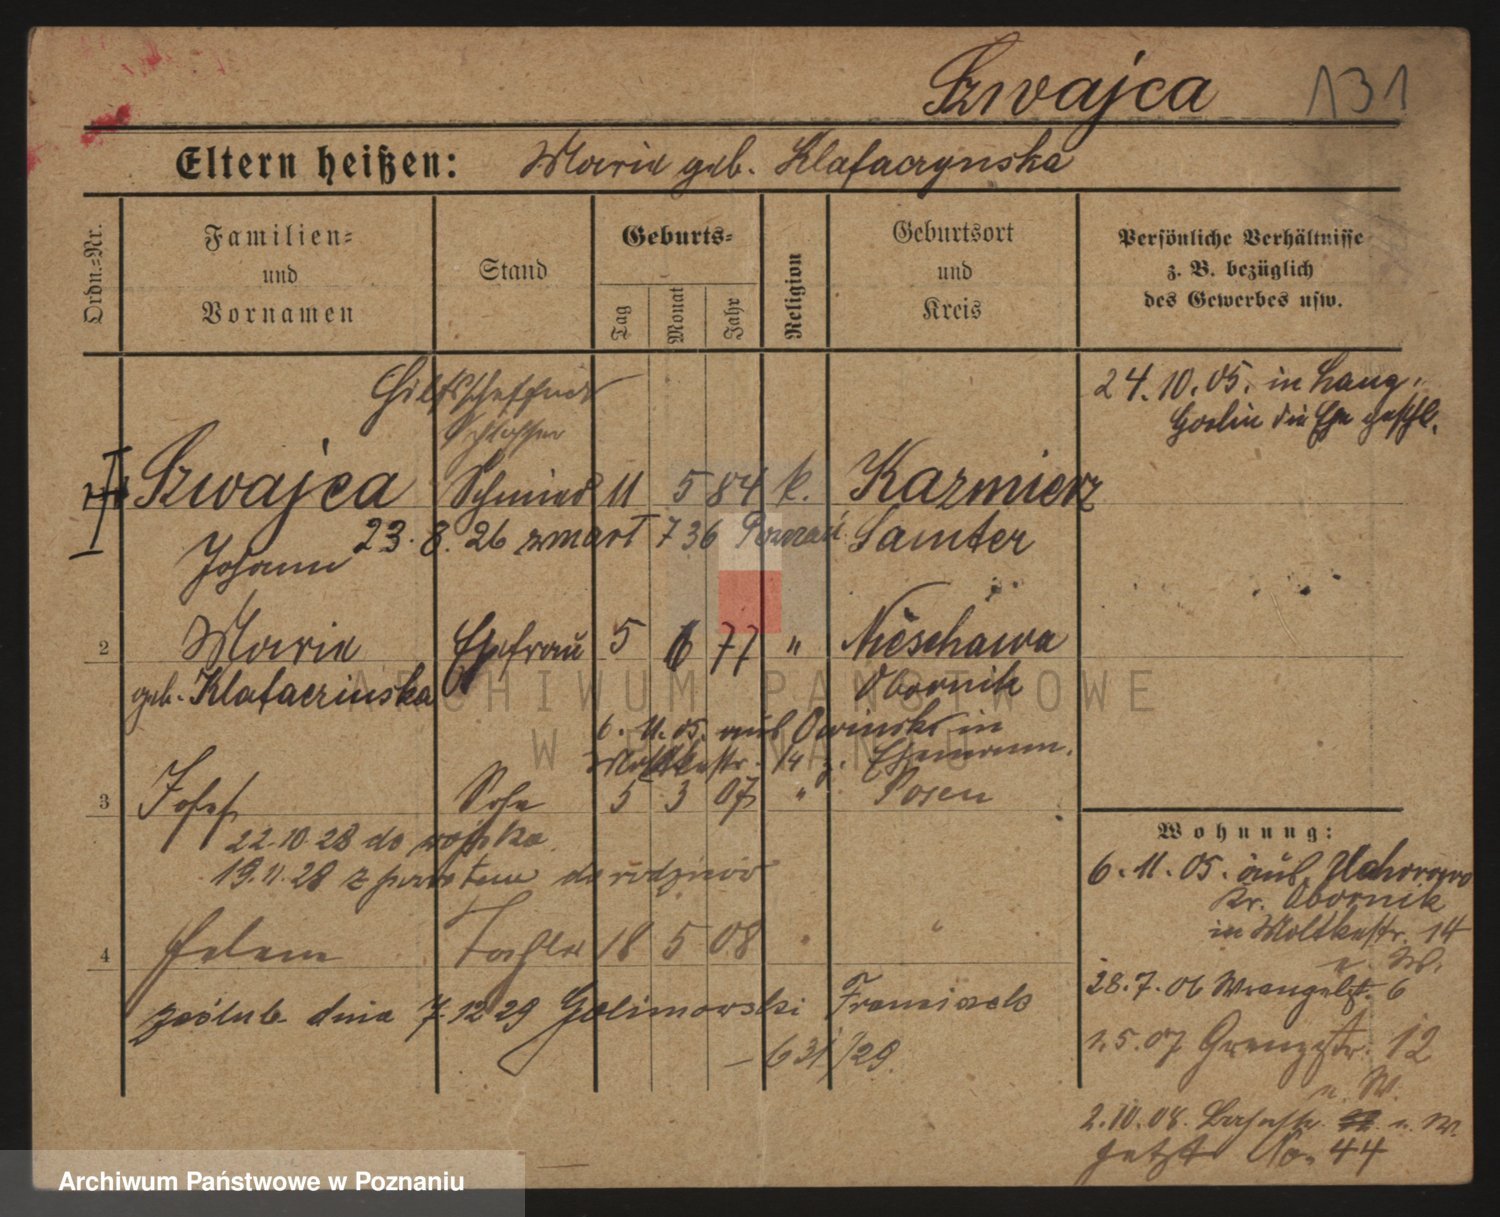 Szwajca 131
Eltern heißen: Marie geb. Klafaczynska
Ordn.-Nr.
Familien-
und
Vornamen
Stand
Geburts-
Tag
Monat
Jahr
Religion
Geburtsort
und
Kreis
Persönliche Verhältnisse
z. B. bezüglich
des Gewerbes usw.
24.10.05. in Lang-
Goslin die Ehe geschl.
Schlosser
Szwajca Schmied 11 5 84 k. Kazmierz
Johann 23.8.26 zmarł 736 Poznań Samter
2 Marie Ehefrau 5 6 77 " Nieschawa
geb. Klafaczinska Obornik
6. 11. 05. aus Owinsk in
Moltkestr. 14 z. Ehemann.
3 Josef Sohn 5 3 07 " Posen
22.10.28 do wojska
19.11.28 z powrotem do rodziców
4 Helene Tochter 18 5 08 " "
zaślub. dnia 7.12 29 Galimowski Franciszek
– 631/29.
Wohnung:
6. 11. 05. aus Uchorowo
Kr. Obornik
in Moltkestr. 14
n. W.
28.7.06 Wrangelst. 6
1.5.07 Grenzstr. 12
n. W.
2.10.08. n. W.
jetzt No. 44
ARCHIWUM PAŃSTWOWE
W POZNANIU
Archiwum Państwowe w Poznaniu